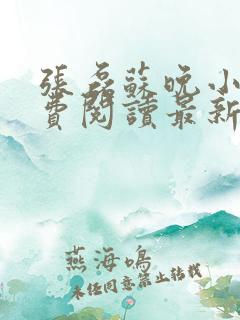 張磊蘇晚小
費閱讀最新
燕海鳴
未經同意禁止轉載